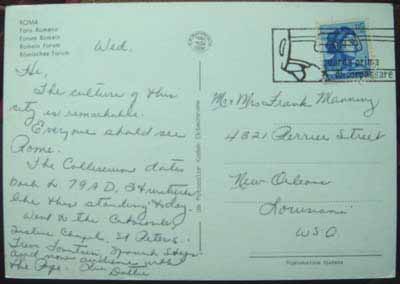 ROMA
Foro Romano
Forum Romain
Roman Forum
Römisches Forum
Wed.
Hi,
The culture of this
city is remarkable.
Everyone should see
Rome.
The Colliseum dates
back to 79 A D, 
like this standing today.
Went to the Catacombs,
Sistine Chapel, St Peters,
Trevi Fountain, Spanish Steps
and audience with
the Pope.
guarda prima
Mr & Mrs Frank Manning
4321 Perrier Street
New Orleans
Louisiana
USA